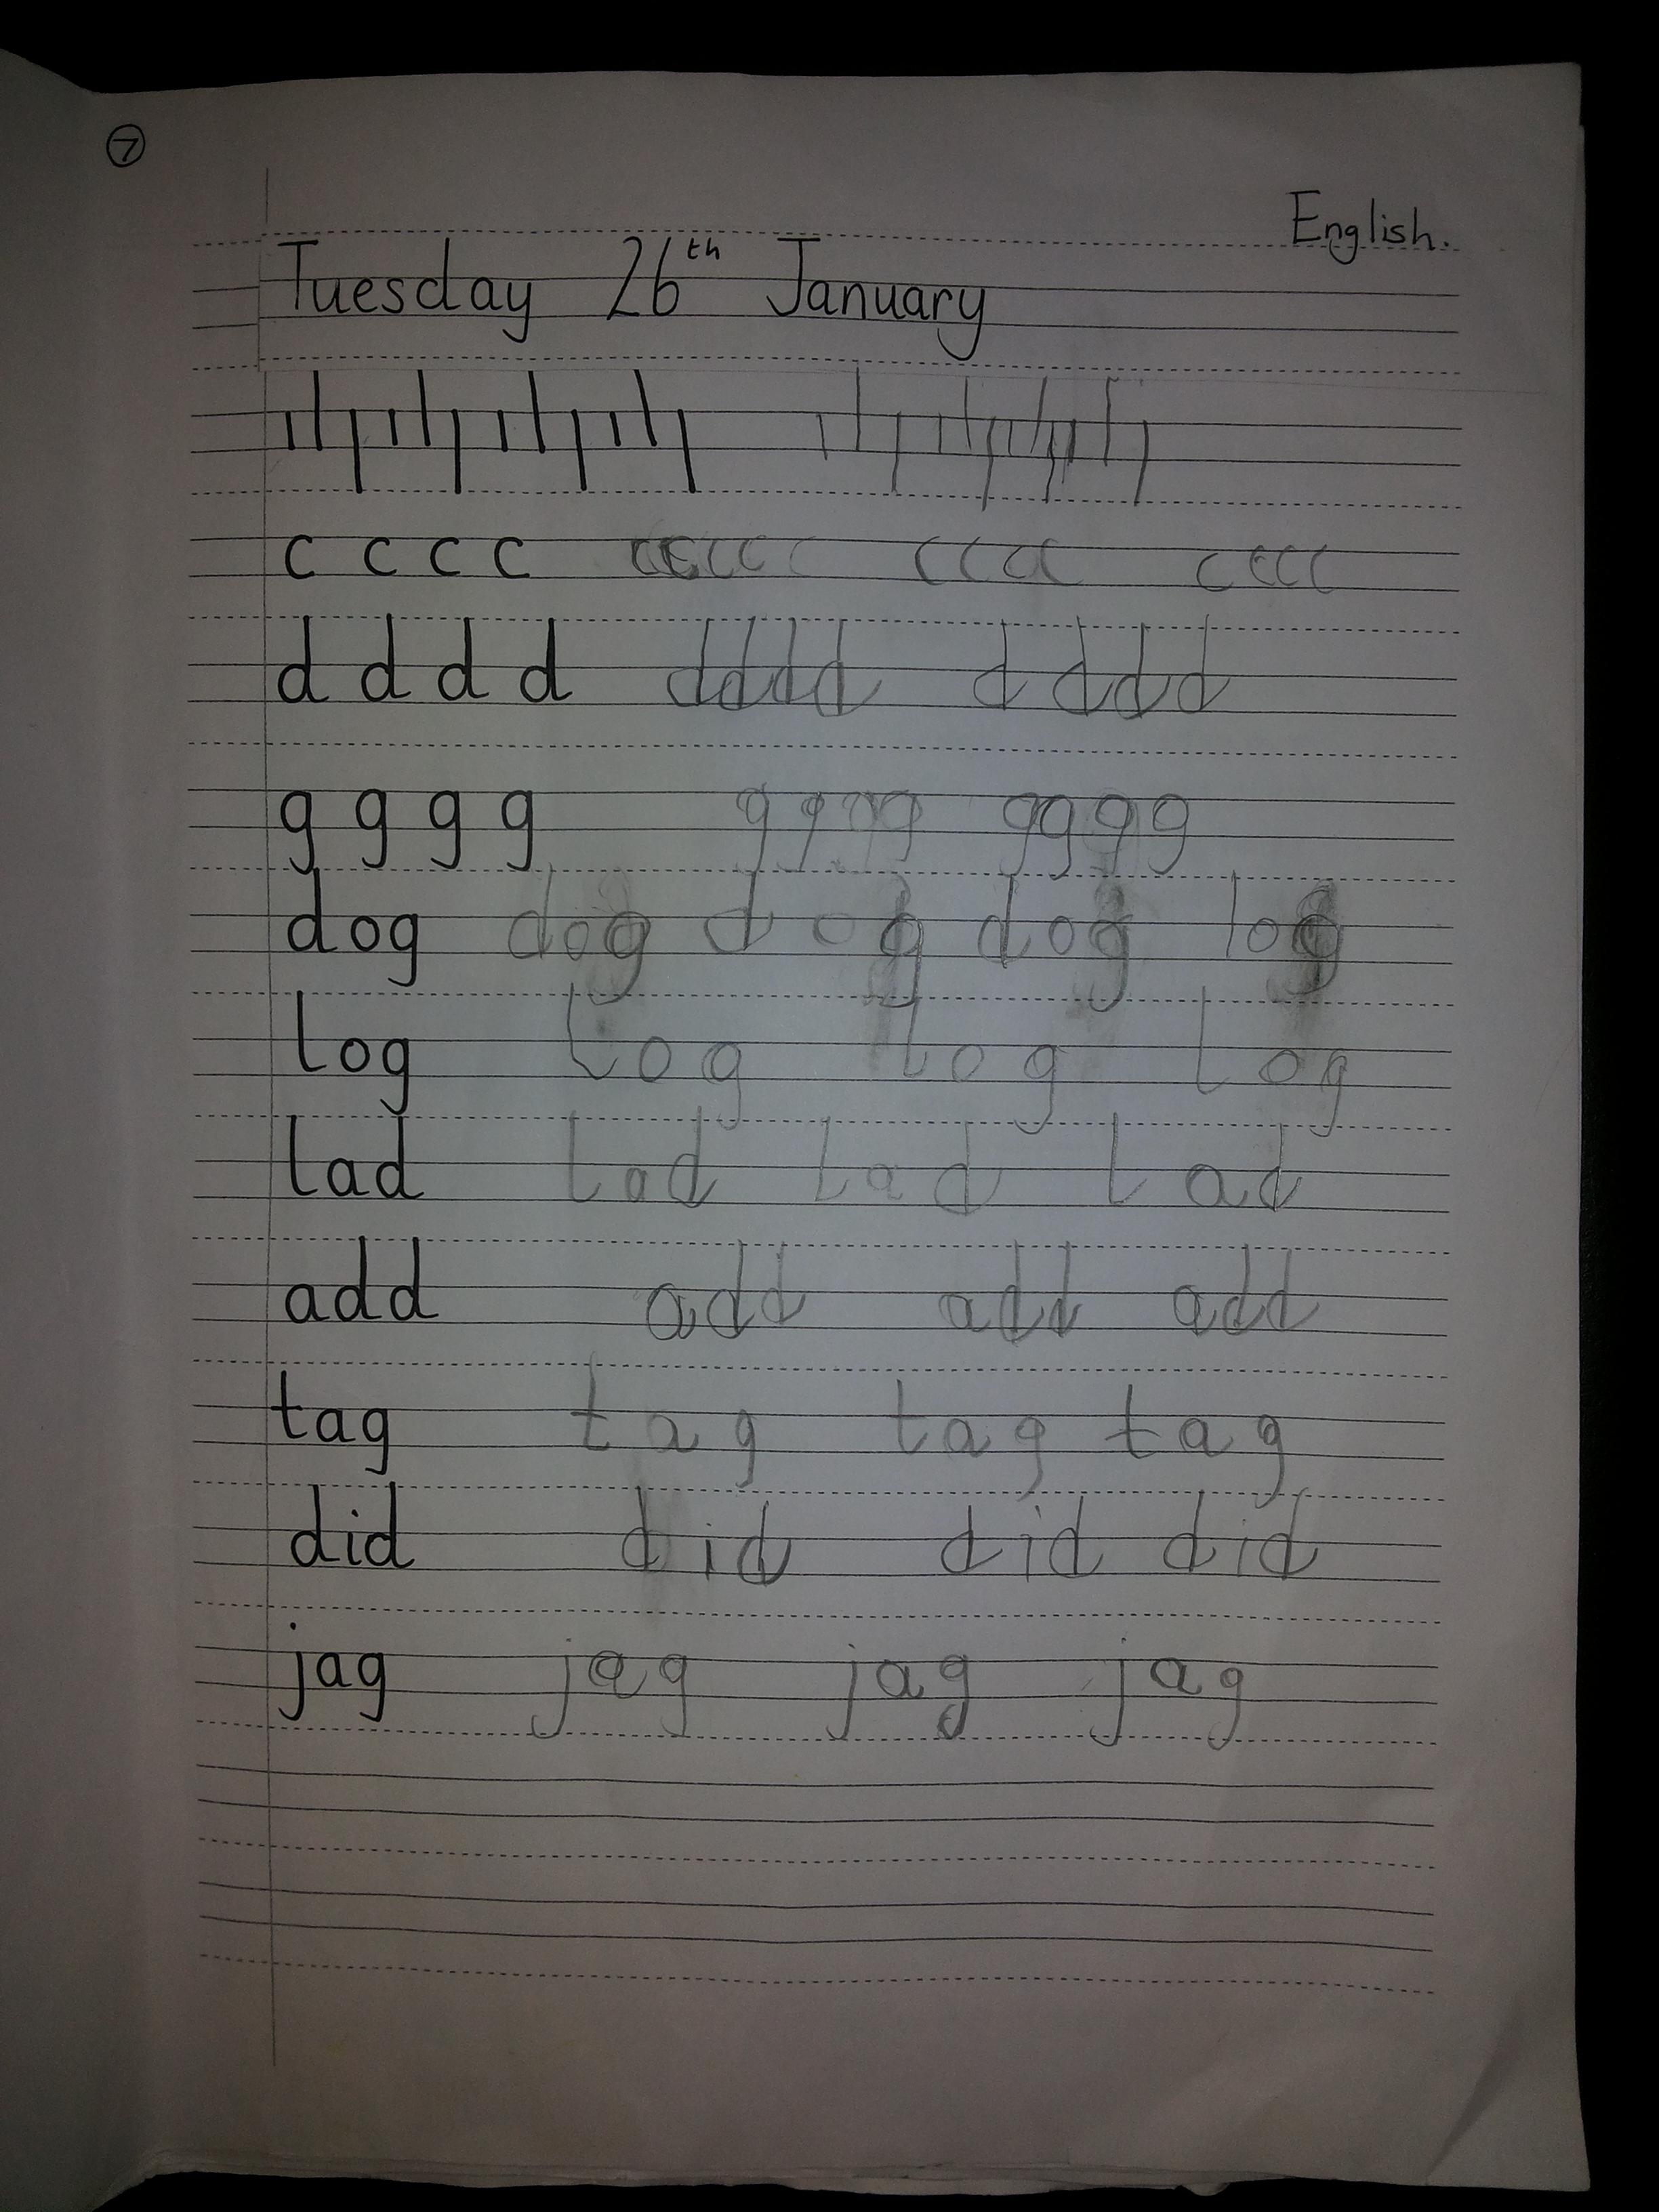 7
English.
Tuesday 26th January
c c c c c c c c c c c c c c c c c
d d d d d d d d d d d d
g g g g g g g g g g g g
dog dog dog dog log
log log log log
lad lad lad lad
add add add add
tag tag tag tag
did did did did
jag jag jag jag